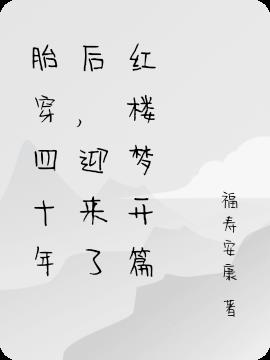 胎穿四十年
后，迎来了
红楼梦开篇
福寿安康 著